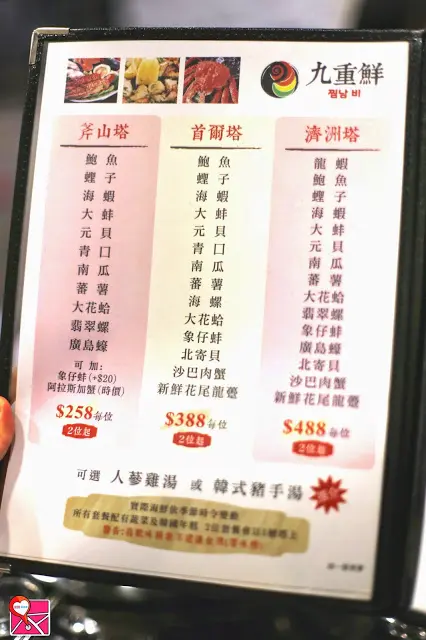 九重鮮
찜남비
斧山塔
鮑魚
蟶子
海蝦
大蚌
元貝
青口
南瓜
蕃薯
大花蛤
翡翠螺
廣島蠔
可加:
象仔蚌(+$20)
阿拉斯加蟹(時價)
$258每位
2位起
首爾塔
鮑魚
蟶子
海蝦
大蚌
元貝
青口
南瓜
蕃薯
海螺
大花蛤
象仔蚌
北寄貝
沙巴肉蟹
新鮮花尾龍躉
$388每位
2位起
濟洲塔
龍蝦
鮑魚
蟶子
海蝦
大蚌
元貝
南瓜
蕃薯
大花蛤
翡翠螺
廣島蠔
象仔蚌
北寄貝
沙巴肉蟹
新鮮花尾龍躉
$488每位
2位起
可選 人蔘雞湯 或 韓式豬手湯
實際海鮮依季節時令變動
所有套餐配有蔬菜及韓國年糕